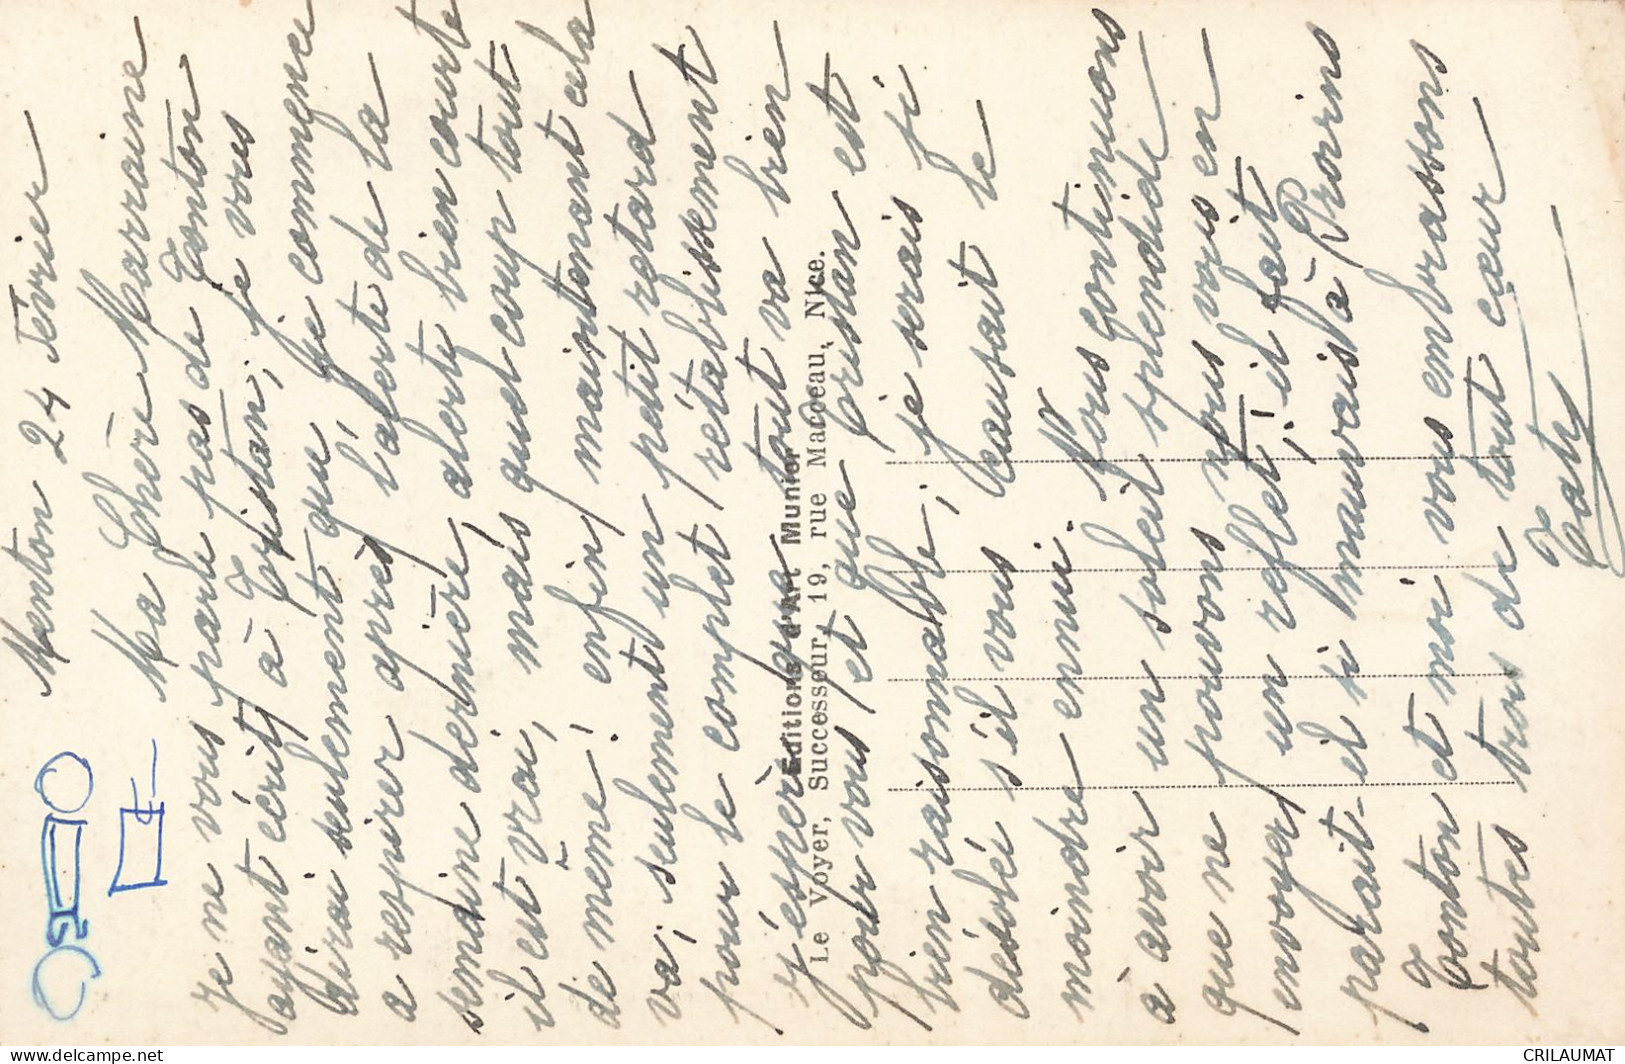 Menton 24 Février
Ma Chère Marraine
Je ne vous parle pas de Tonton
ayant écrit à Tristan, je vous
dirai seulement que je commence
a respirer après l'alerte de la
semaine dernière, alerte bien courte
il est vrai, mais quel coup tout
de meme! enfin maintenant cela
va, seulement un petit retard
pour le complet rétablissement
j'espère que tout va bien
pour vous et que Tristan est
bien raisonnable, je serais si
désolée s'il vous causait le
moindre ennui. Nous continuons
à avoir un soleil splendide
que ne pouvons nous vous en
envoyer un reflet, il fait
parait-il si mauvais à Provins
Tonton et moi vous embrassons
toutes trois de tout cœur
Taty
Editions d'Art Munier
Le Voyer, Successeur, 19, rue Marceau, Nice.
CRILAUMAT
delcampe.net